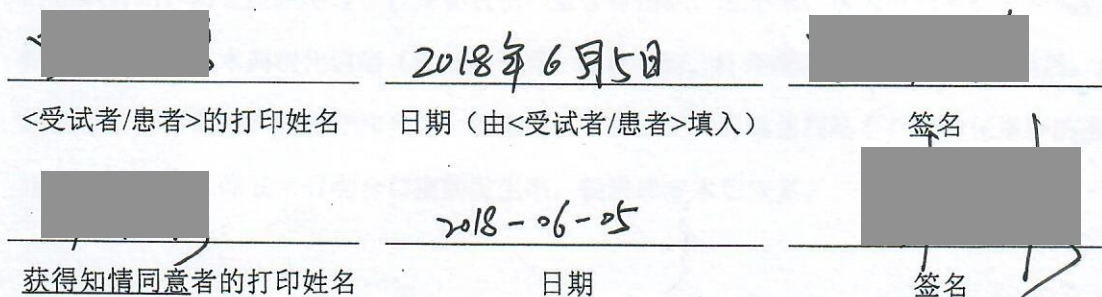 2018年6月5日
<受试者/患者>的打印姓名 日期（由<受试者/患者>填入） 签名
2018-06-05
获得知情同意者的打印姓名 日期 签名